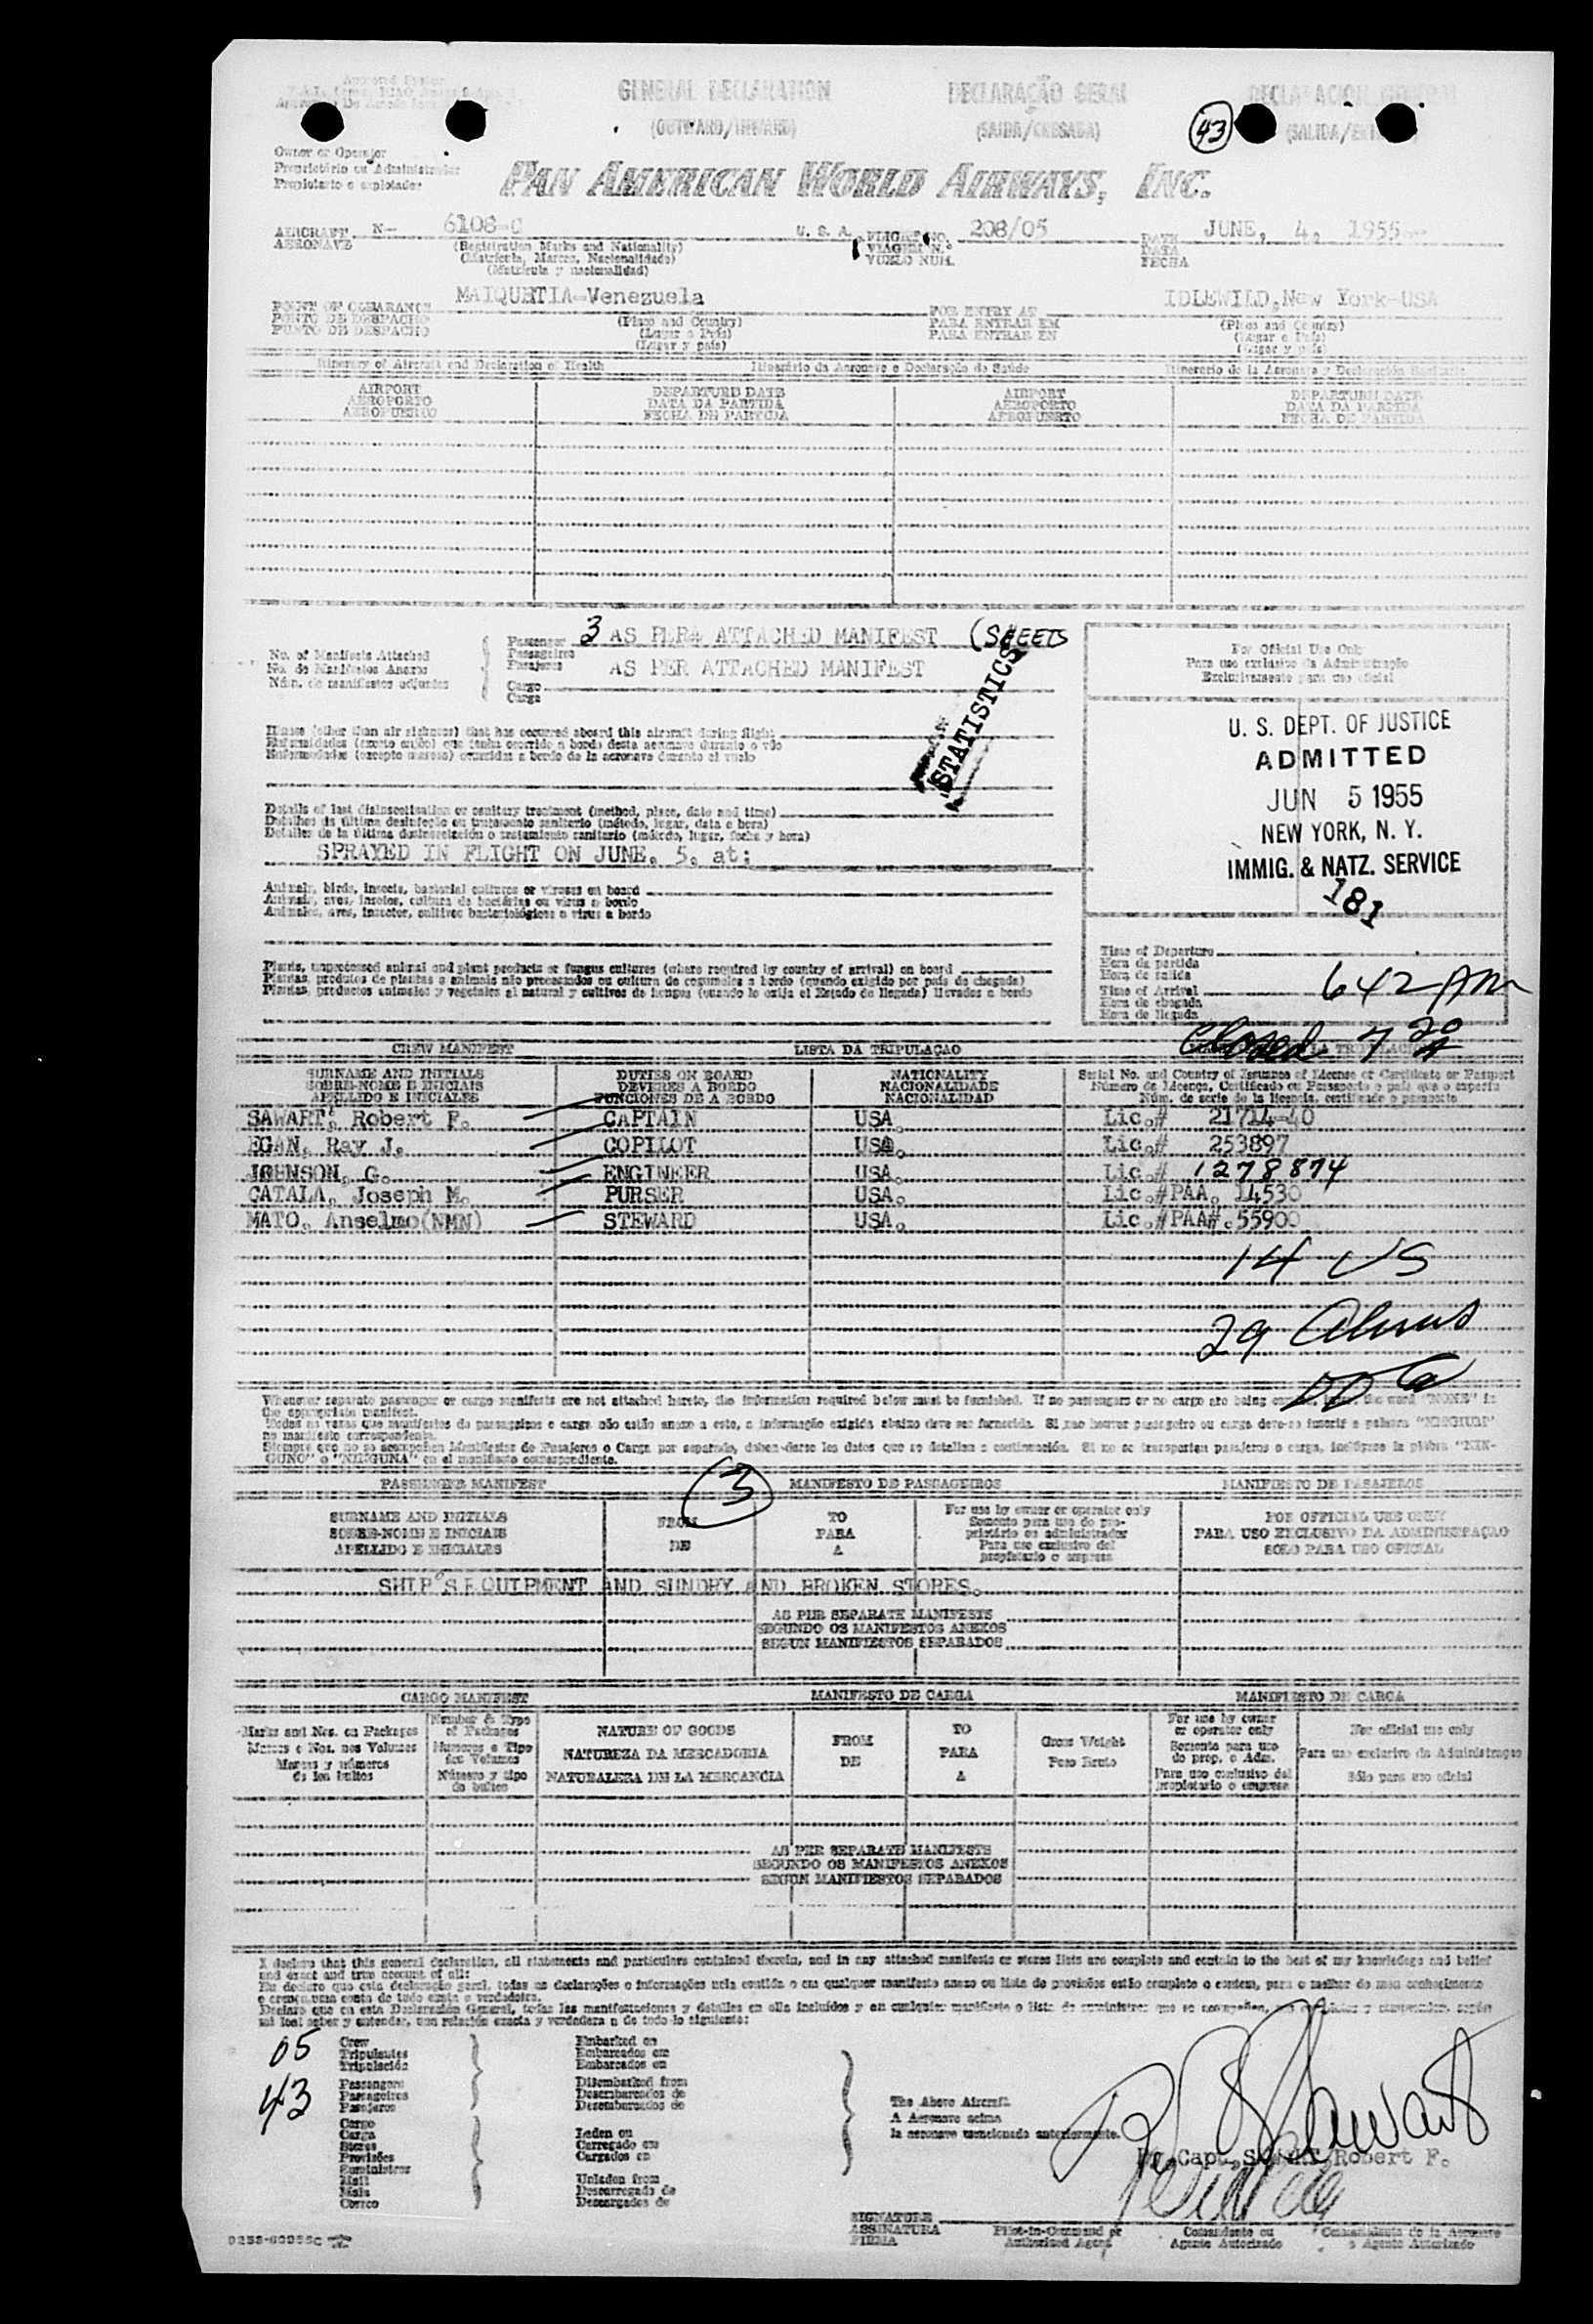 GENERAL DECLARATION DECLARAÇÃO GERAL DECLARACION GENERAL
(OUTWARD/INWARD) (SAIDA/CHEGADA) 43 (SALIDA/
Owner or Operator
Proprietário ou Administrador
Propietario o explotador
PAN AMERICAN WORLD AIRWAYS, INC.
AIRCRAFT N- 6108-C U. S. A. FLIGHT NO. 208/05 DATE JUNE, 4, 1955
AERONAVE (Registration Marks and Nationality) VIAGEM N.° DATA
(Matrícula, Marcas, Nacionalidade) VUELO NUM. FECHA
(Matrícula y nacionalidad)
POINT OF CLEARANCE MAIQUETIA-Venezuela FOR ENTRY AT IDLEWILD,New York-USA
PONTO DE DESPACHO (Place and Country) PARA ENTRAR EM (Place and Country)
PUNTO DE DESPACHO (Lugar e País) PARA ENTRAR EN (Lugar e País)
(Lugar y país) (Lugar y país)
Itinerary of Aircraft and Declaration of Health Itinerário da Aeronave e Declaração de Saúde Itinerario de la Aeronave y Declaración
AIRPORT DEPARTURE DATE AIRPORT DEPARTURE DATE
AEROPORTO DATA DA PARTIDA AEROPORTO DATA DA PARTIDA
AEROPUERTO FECHA DE PARTIDA AEROPUERTO FECHA DE PARTIDA
No. of Manifests Attached
No. de Manifestos Anexos
Núm. de manifiestos adjuntos
Passenger 3 AS PER ATTACHED MANIFEST (SHEETS
Passageiros
Pasajeros AS PER ATTACHED MANIFEST
Cargo
Carga
STATISTICS
For Official Use Only
Para uso exclusivo da Administração
Exclusivamente para uso oficial
U. S. DEPT. OF JUSTICE
ADMITTED
JUN 5 1955
NEW YORK, N. Y.
IMMIG. & NATZ. SERVICE
181
Illness (other than air sickness) that has occurred aboard this aircraft during flight
Enfermidades (exceto enjôo) que tenha ocorrido a bordo desta aeronave durante o vôo
Enfermedades (excepto mareo) ocurridas a bordo de la aeronave durante el vuelo
Details of last disinsectisation or sanitary treatment (method, place, date and time)
Detalhes da última desinfeção ou tratamento sanitario (método, lugar, data e hora)
Detalles de la última desinsectación o tratamiento sanitario (método, lugar, fecha y hora)
SPRAYED IN FLIGHT ON JUNE. 5. at:
Animals, birds, insects, bacterial cultures or viruses on board
Animais, aves, insetos, cultura de bactérias ou virus a bordo
Animales, aves, insectos, cultivos bacteriológicos o virus a bordo
Plants, unprocessed animal and plant products or fungus cultures (where required by country of arrival) on board
Plantas, produtos de plantas e animais não processados ou cultura de cogumelos a bordo (quando exigido por país de chegada)
Plantas, productos animales y vegetales al natural y cultivos de hongos (cuando lo exija el Estado de llegada) llevados a bordo
Time of Departure
Hora de partida
Hora de salida
Time of Arrival 642 AM
Hora de chegada
Hora de llegada
Closed 7 20 A
CREW MANIFEST LISTA DA TRIPULAÇÃO
SURNAME AND INITIALS DUTIES ON BOARD NATIONALITY Serial No. and Country of Issuance of License or Certificate or Passport
SOBRE-NOME E INICIAIS DEVERES A BORDO NACIONALIDADE Número da Licença, Certificado ou Passaporte e país que o expediu
APELLIDO E INICIALES FUNCIONES DE A BORDO NACIONALIDAD Núm. de serie de la licencia, certificado o pasaporte
SAWART, Robert F. CAPTAIN USA. Lic.# 21714-40
EGAN, Ray J. COPILOT USA. Lic.# 253897
JOHNSON, G. ENGINEER USA. Lic.# 1278874
CATALA, Joseph M. PURSER USA. Lic.#PAA. 14530
MATO, Anselmo(NMN) STEWARD USA. Lic.#PAA#.55900
14 US
29 Aliens
Whenever separate passenger or cargo manifests are not attached hereto, the information required below must be furnished. If no passengers or no cargo are being the word "NONE" in
the appropriate manifest.
Todas as vezes que manifestos de passageiros e carga não estão anexo a este, a informação exigida abaixo deve ser fornecida. Si nao houver passageiro ou carga deve-se inserir a palavra "NENHUM"
no manifesto correspondente.
Siempre que no se acompañen Manifiestos de Pasajeros o Carga por separado, deben darse los datos que se detallan a continuación. Si no se transportan pasajeros o carga, inclúyase la palabra "NIN-
GUNO" o "NINGUNA" en el manifiesto correspondiente.
3
PASSENGER MANIFEST MANIFESTO DE PASSAGEIROS MANIFIESTO DE PASAJEROS
SURNAME AND INITIALS FROM TO For use by owner or operator only FOR OFFICIAL USE ONLY
SOBRE-NOME E INICIAIS DE PARA Somente para uso do pro- PARA USO EXCLUSIVO DA ADMINISTRAÇAO
APELLIDO E INICIALES A prietário ou administrador SOLO PARA USO OFICIAL
Para uso exclusivo del
propietario o empresa
SHIP'S EQUIPMENT AND SUNDRY AND BROKEN STORES.
AS PER SEPARATE MANIFESTS
SEGUNDO OS MANIFESTOS ANEXOS
SEGUN MANIFIESTOS SEPARADOS
CARGO MANIFEST MANIFESTO DE CARGA MANIFIESTO DE CARGA
Marks and Nos. on Packages Number & Type of Packages NATURE OF GOODS FROM TO Gross Weight For use by owner or operator only For official use only
Marcas e Nos. nos Volumes Numeros e Tipo dos Volumes NATUREZA DA MERCADORIA DE PARA Peso Bruto Somente para uso do prop. o Adm. Para uso exclusivo da Administraçao
Marcas y números de los bultos Número y tipo de bultos NATURALEZA DE LA MERCANCIA A Para uso exclusivo del propietario o empresa Sólo para uso oficial
AS PER SEPARATE MANIFESTS
SEGUNDO OS MANIFESTOS ANEXOS
SEGUN MANIFIESTOS SEPARADOS
I declare that this general declaration, all statements and particulars contained therein, and in any attached manifests or stores lists are complete and contain to the best of my knowledge and belief
and exact and true account of all:
Eu declaro que esta declaração geral, todas as declarações e informações nela contida o em qualquer manifesto anexo ou lista de provisões estão completo e contem, para o melhor do meu conhecimento
e crença uma conta de todo exata e verdadeira.
Declaro que en esta Declaración General, todas las manifestaciones y detalles en ella incluidos y en cualquier manifiesto o lista de suministros que se acompañen, son completos y contienen, según
mi leal saber y entender, una relación exacta y verdadera a de todo lo siguiente:
05 Crew Embarked on
Tripulantes Embarcados em
Tripulación Embarcados en
43 Passengers Disembarked from
Passageiros Desembarcados de
Pasajeros Desembarcados de
Cargo
Carga Laden on
Stores Carregado em
Provisões Cargados en
Suministros
Mail Unladen from
Mala Descarregado de
Correo Descargados de
The Above Aircraft
A Aeronave acima
la aeronave mencionada anteriormente.
R F Sawart
By Capt. SAWART, Robert F.
SIGNATURE
ASSINATURA Pilot-in-Command or Comandante ou Comandante de la Aeronave
FIRMA Authorized Agent Agente Autorizado o Agente Autorizado